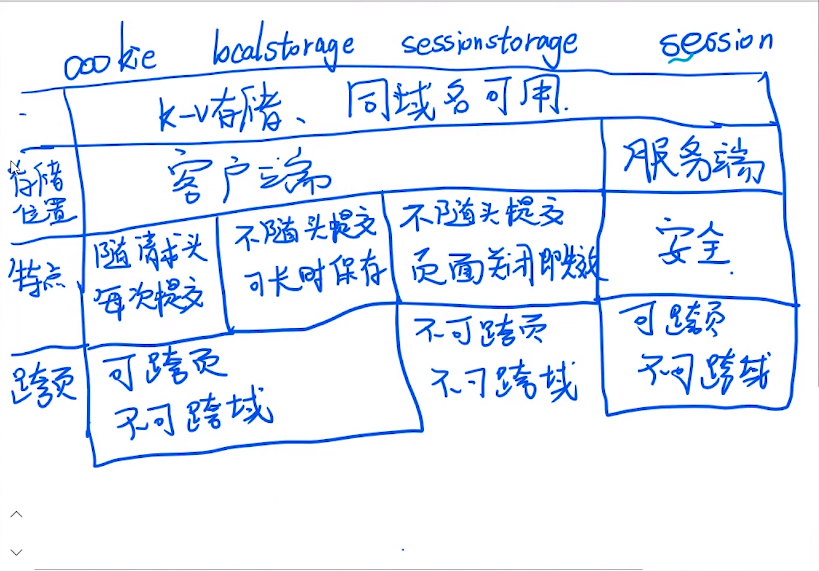 cookie localstorage sessionstorage session
k-v存储、同域名可用.
存储位置 客户端 服务端
特点 随请求头 不随头提交 不随头提交 安全.
每次提交 可长时保存 页面关闭即失效
跨页 可跨页 不可跨页 可跨页
不可跨域 不可跨域 不可跨域